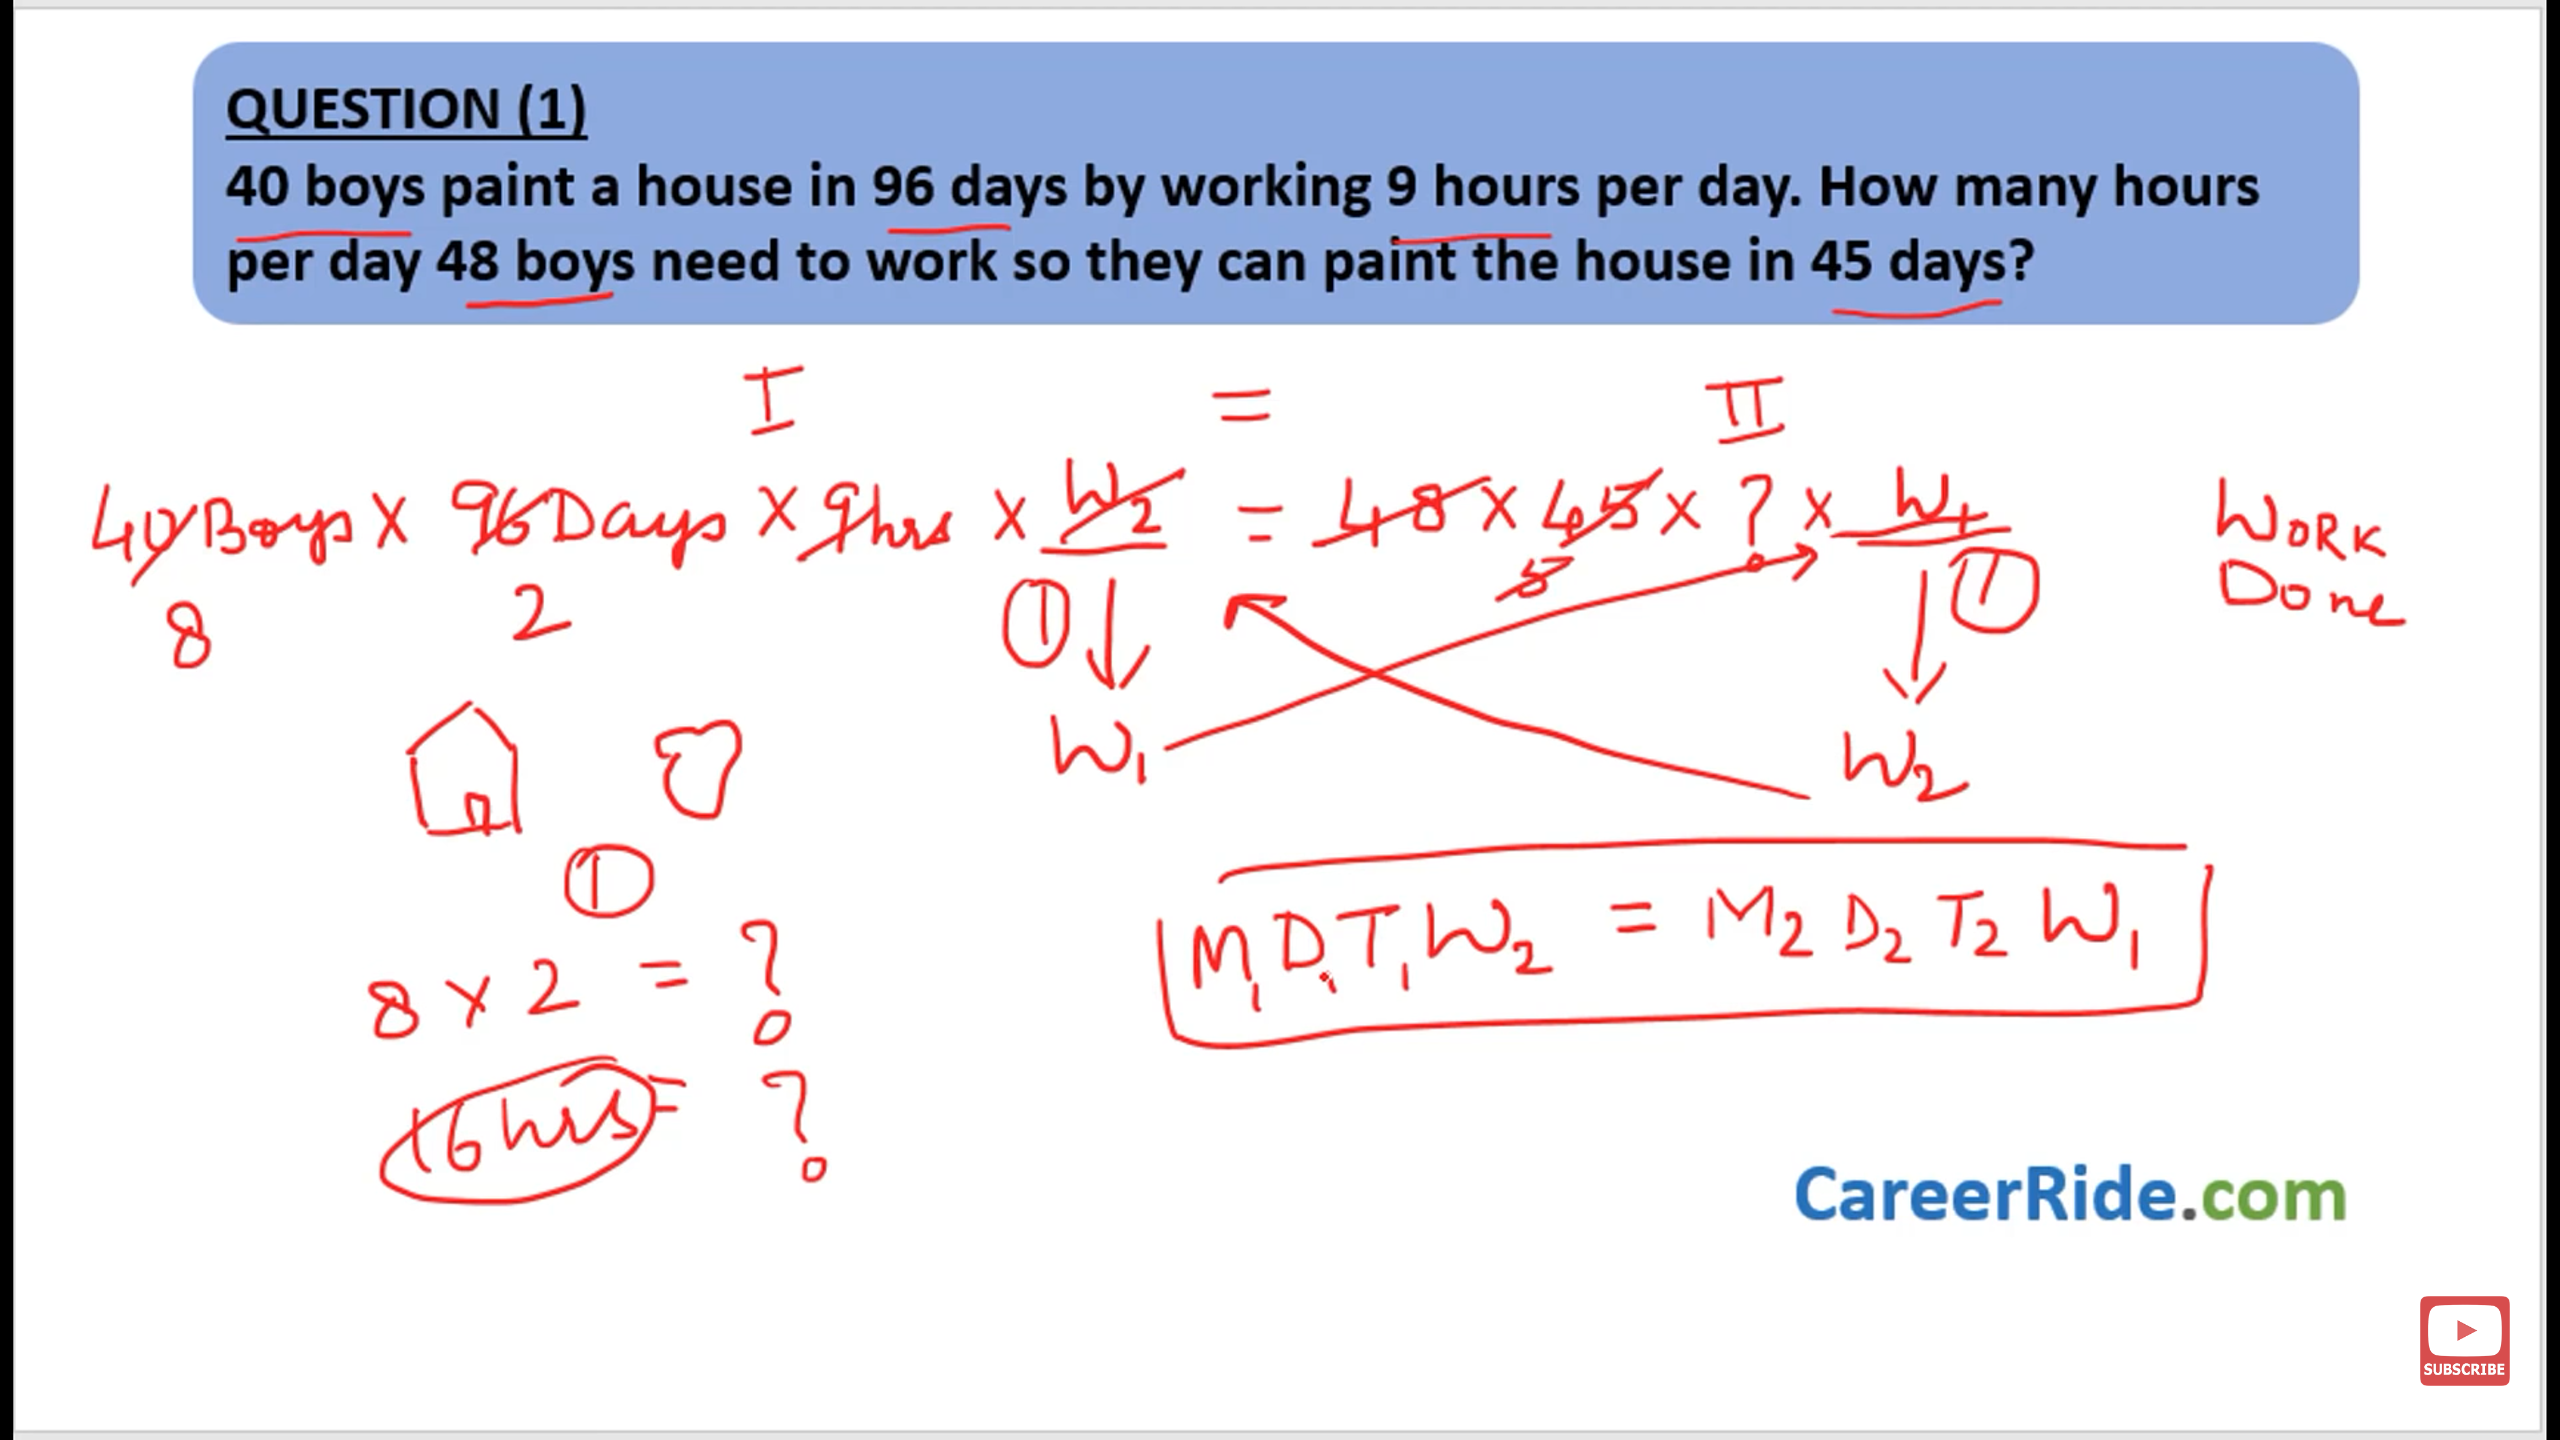 QUESTION (1)
40 boys paint a house in 96 days by working 9 hours per day. How many hours
per day 48 boys need to work so they can paint the house in 45 days?
I = II
40 Boys X 96 Days X 9 hrs X W2 = 48 X 45 X ? X W1
WORK
Done
8 2 1 5 1
W1 W2
1
M1 D1 T1 W2 = M2 D2 T2 W1
8 X 2 = ?
16 hrs = ?
CareerRide.com
SUBSCRIBE